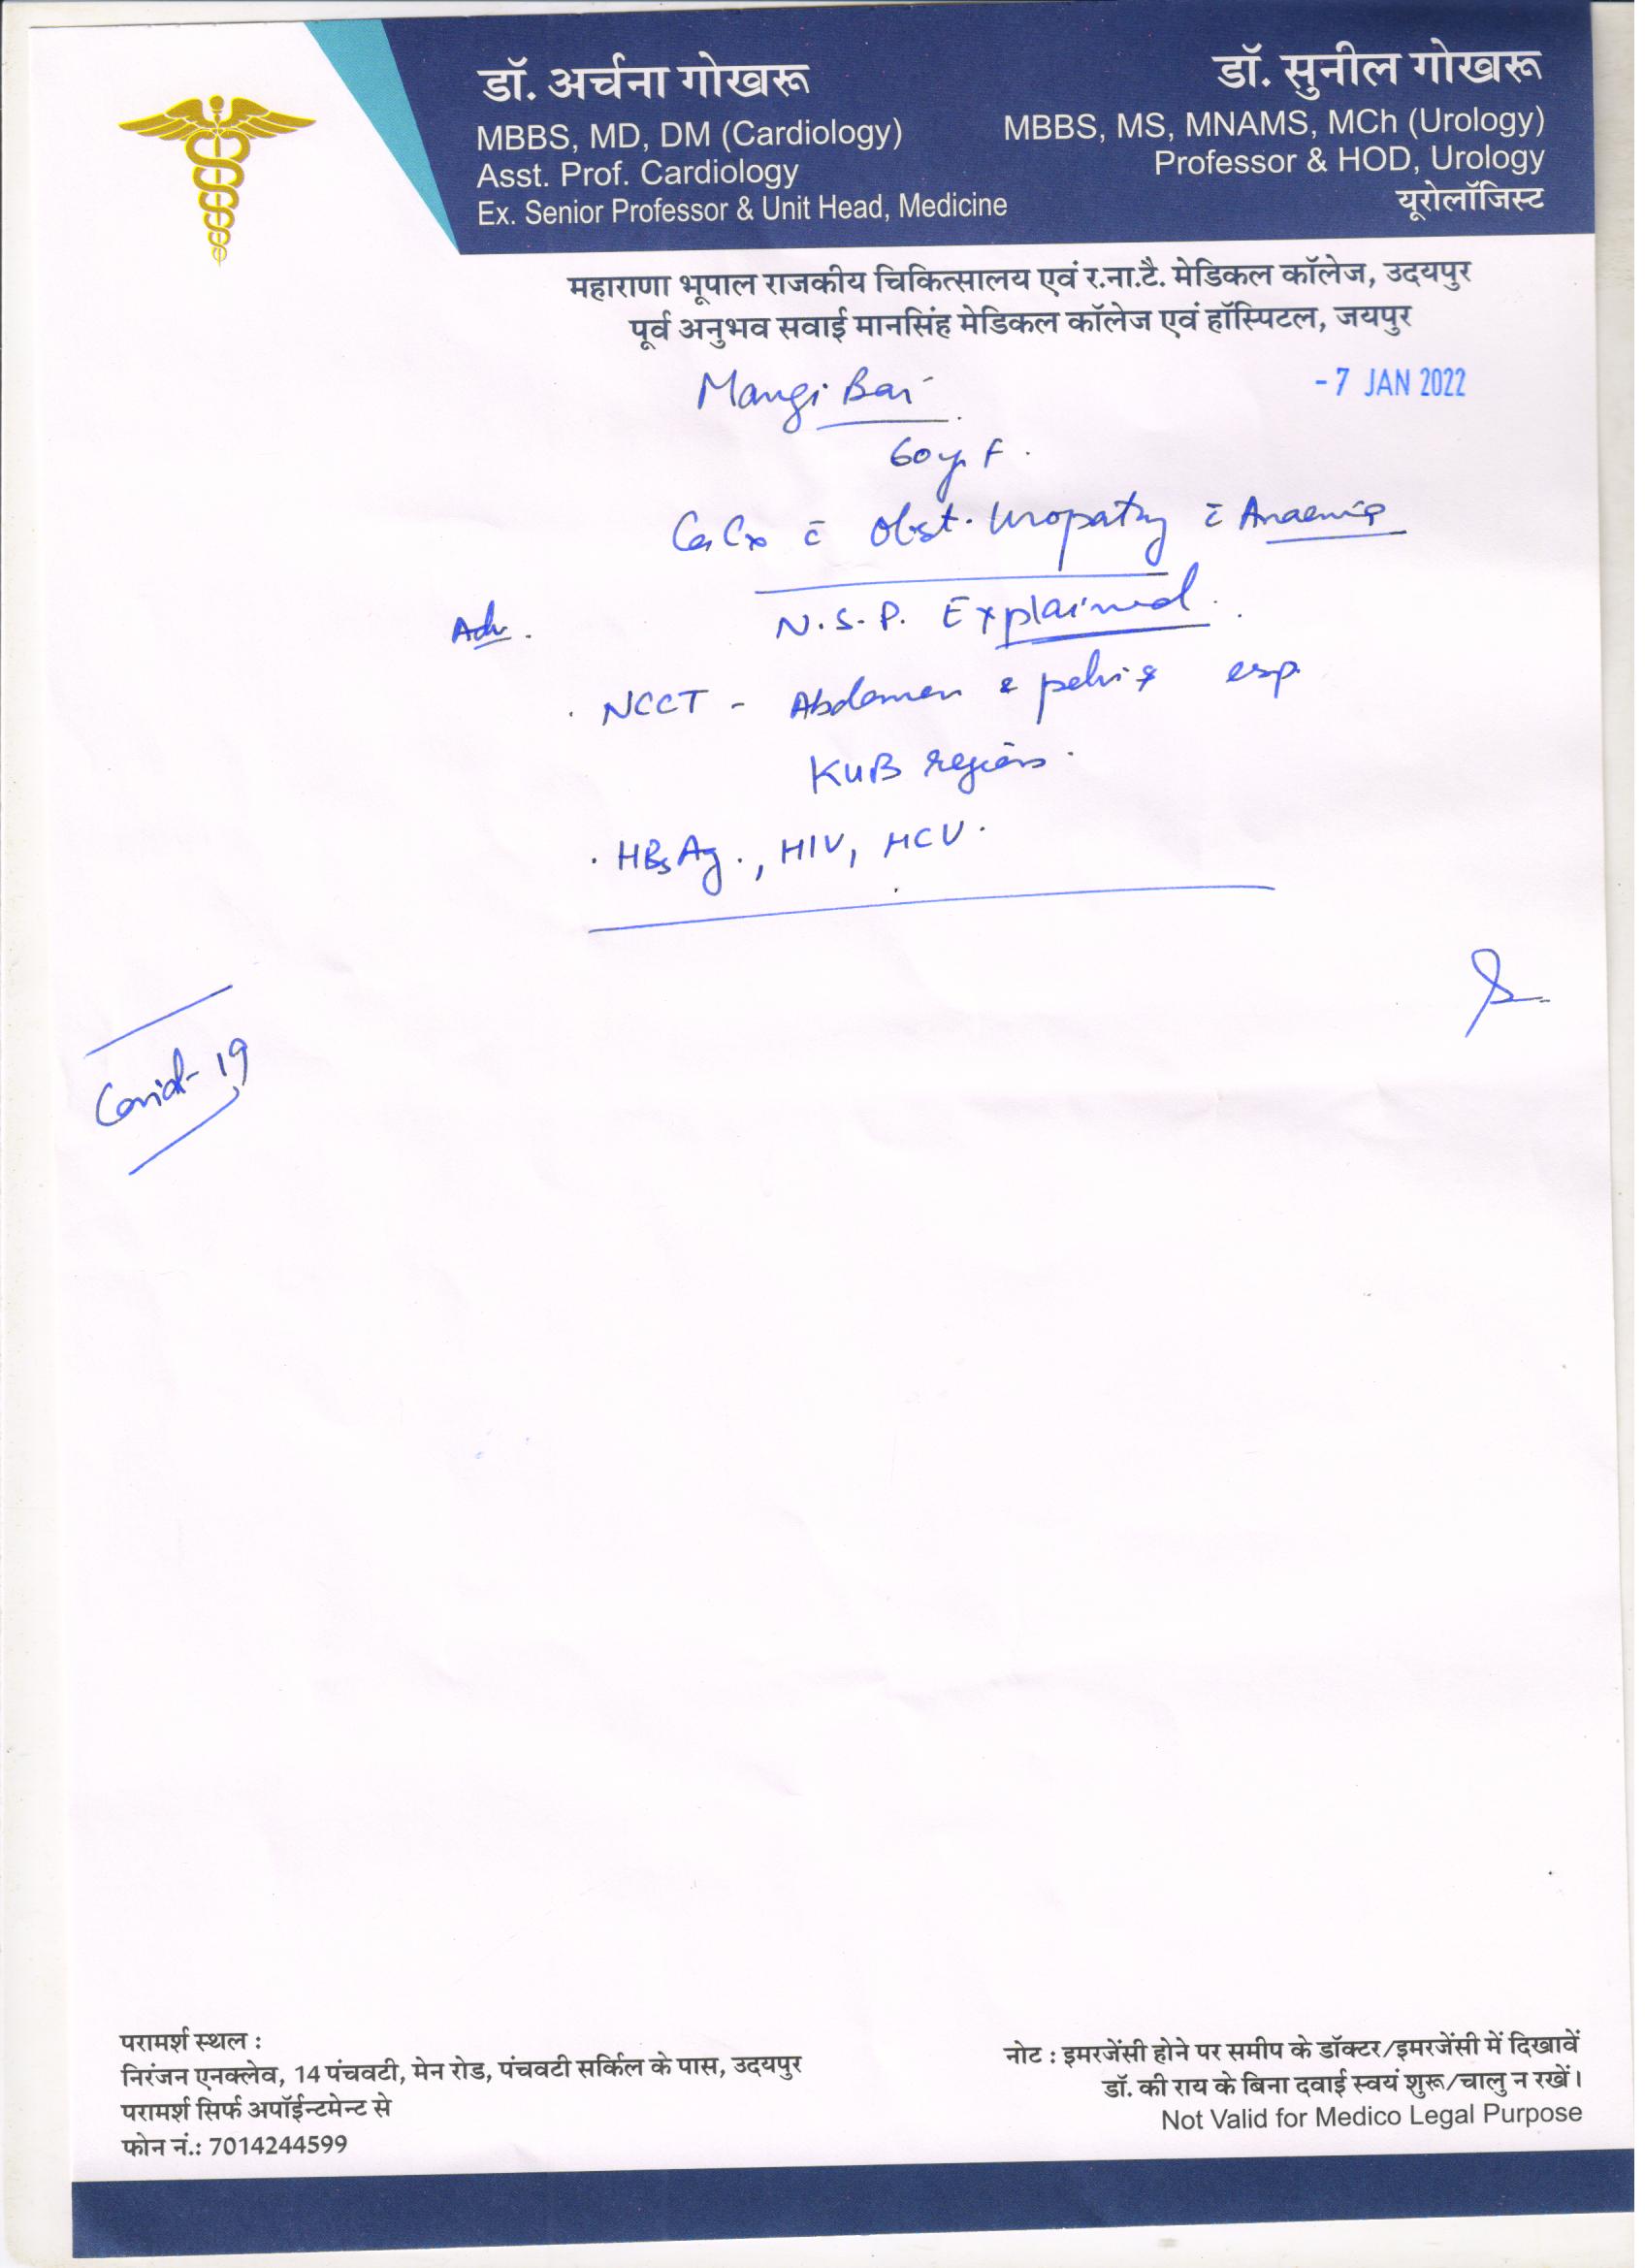 डॉ. अर्चना गोखरू
MBBS, MD, DM (Cardiology)
Asst. Prof. Cardiology
Ex. Senior Professor & Unit Head, Medicine
डॉ. सुनील गोखरू
MBBS, MS, MNAMS, MCh (Urology)
Professor & HOD, Urology
यूरोलॉजिस्ट
महाराणा भूपाल राजकीय चिकित्सालय एवं र.ना.टै. मेडिकल कॉलेज, उदयपुर
पूर्व अनुभव सवाई मानसिंह मेडिकल कॉलेज एवं हॉस्पिटल, जयपुर
Mangi Bai
- 7 JAN 2022
60 yr F.
Ca Cx c̄ Obst. Uropathy c̄ Anaemia
Adv. N.S.P. Explained.
. NCCT - Abdomen & pelvis esp.
KUB region.
. HBsAg., HIV, HCV.
Covid-19
परामर्श स्थल :
निरंजन एनक्लेव, 14 पंचवटी, मेन रोड, पंचवटी सर्किल के पास, उदयपुर
परामर्श सिर्फ अपॉईन्टमेन्ट से
फोन नं.: 7014244599
नोट : इमरजेंसी होने पर समीप के डॉक्टर/इमरजेंसी में दिखावें
डॉ. की राय के बिना दवाई स्वयं शुरू/चालु न रखें।
Not Valid for Medico Legal Purpose